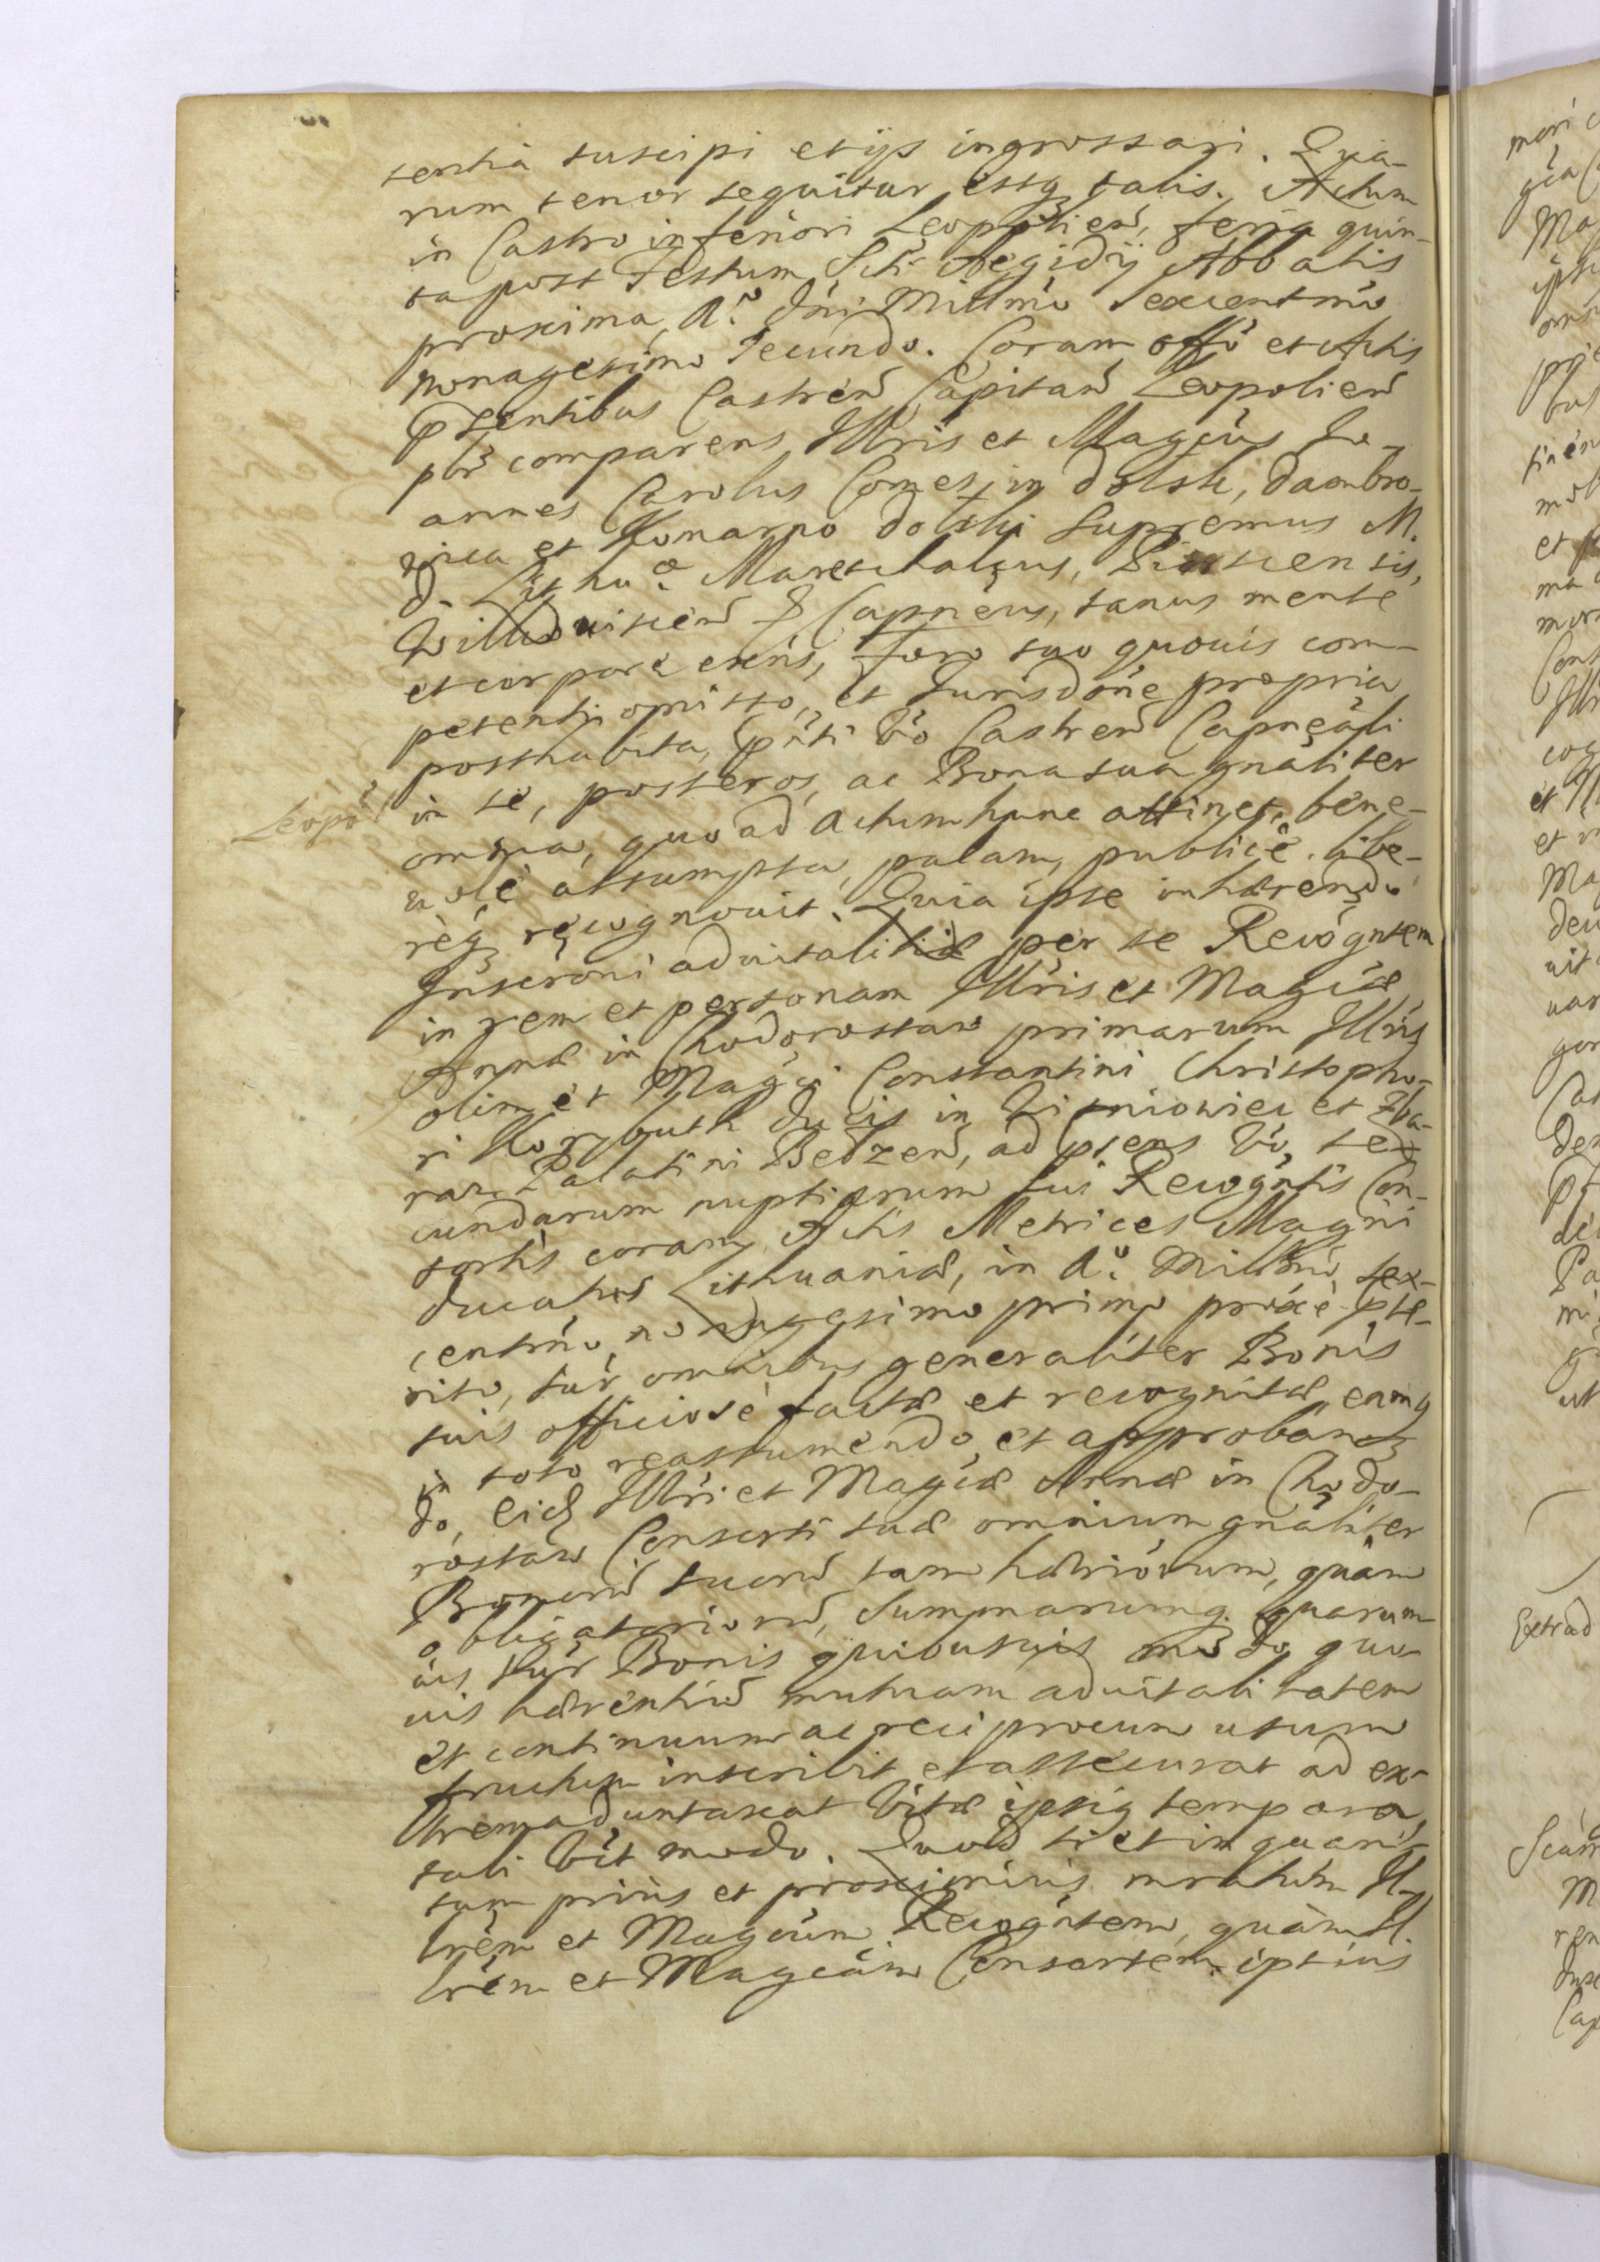 sentia suscipi et ijs ingrossari. Qua-
rum tenor sequitur estq talis. Actum
in Castro inferiori Leopolien, feria quin-
ta post Festum Sti Aegidij Abbatis
proxima, Aº. Dni Millmo Sexcentmo
Nonagesimo Secundo. Coram Offo et Actis
pntibus Castren Capitan Leopolien
plr comparens Illris et Magcus Jo-
annes Carolus Comes in Dolsk, Dambro-
wica et Komarno Dolski Supremus M.
D. Lithuæ. Mareschalcus, Pinscensis,
et Capneus, sanus mente
et corpore exns, foro suo quovis com-
petenti omisso, et Jurisdone propria
posthabita, pnti vo Castren Capneali
in se, posteros, ac Bona sua gnaliter
Leopol
omnia, quo ad Actum hunc attinet, bene-
vole assumpta, palam, publice, libe-
req recognovit. Quia ipse inhærendo
Inscroni advitalitiæ per se Recogntem
in rem et personam Illris et Magcæ
Annæ in Chodorostaw primarum Illris
olim et Magci Constantini Christopho-
ri Korybuth Ducis in Wisniowiec et Zba-
raz Palatini Belzen, ad psens vo, se-
cundarum nuptiarum sui Recogntis Con-
sortis coram Actis Metrices Magni
Ducatus Lithuaniæ, in Aº. Millmo, sex-
centmo, nonagesimo primo proxe præte-
rito, sup omnibus generaliter Bonis
suis officiose factæ et recognitæ, eamq
in toto reassumendo, et approban-
do, Eid Illri et Magcæ Annæ in Chodo-
rostaw Consorti suæ omnium gnaliter
Bonorum suorum tam hæriorum, quam
obligatoriorum, Summarumq quarum-
vis sup Bonis quibusvis modo quo-
vis hærentium mutuam advitalitatem
et continuum ac reciprocum usum
fructum inscribit et assecurat ad ex-
trema duntaxat vitæ ipsius tempora,
tali vit modo. Quod si et in quan-
tum prius et proximius mrahm Il-
lrem et Magcum Recogntem, quam Il-
lrem et Magcam Consortem ipsius